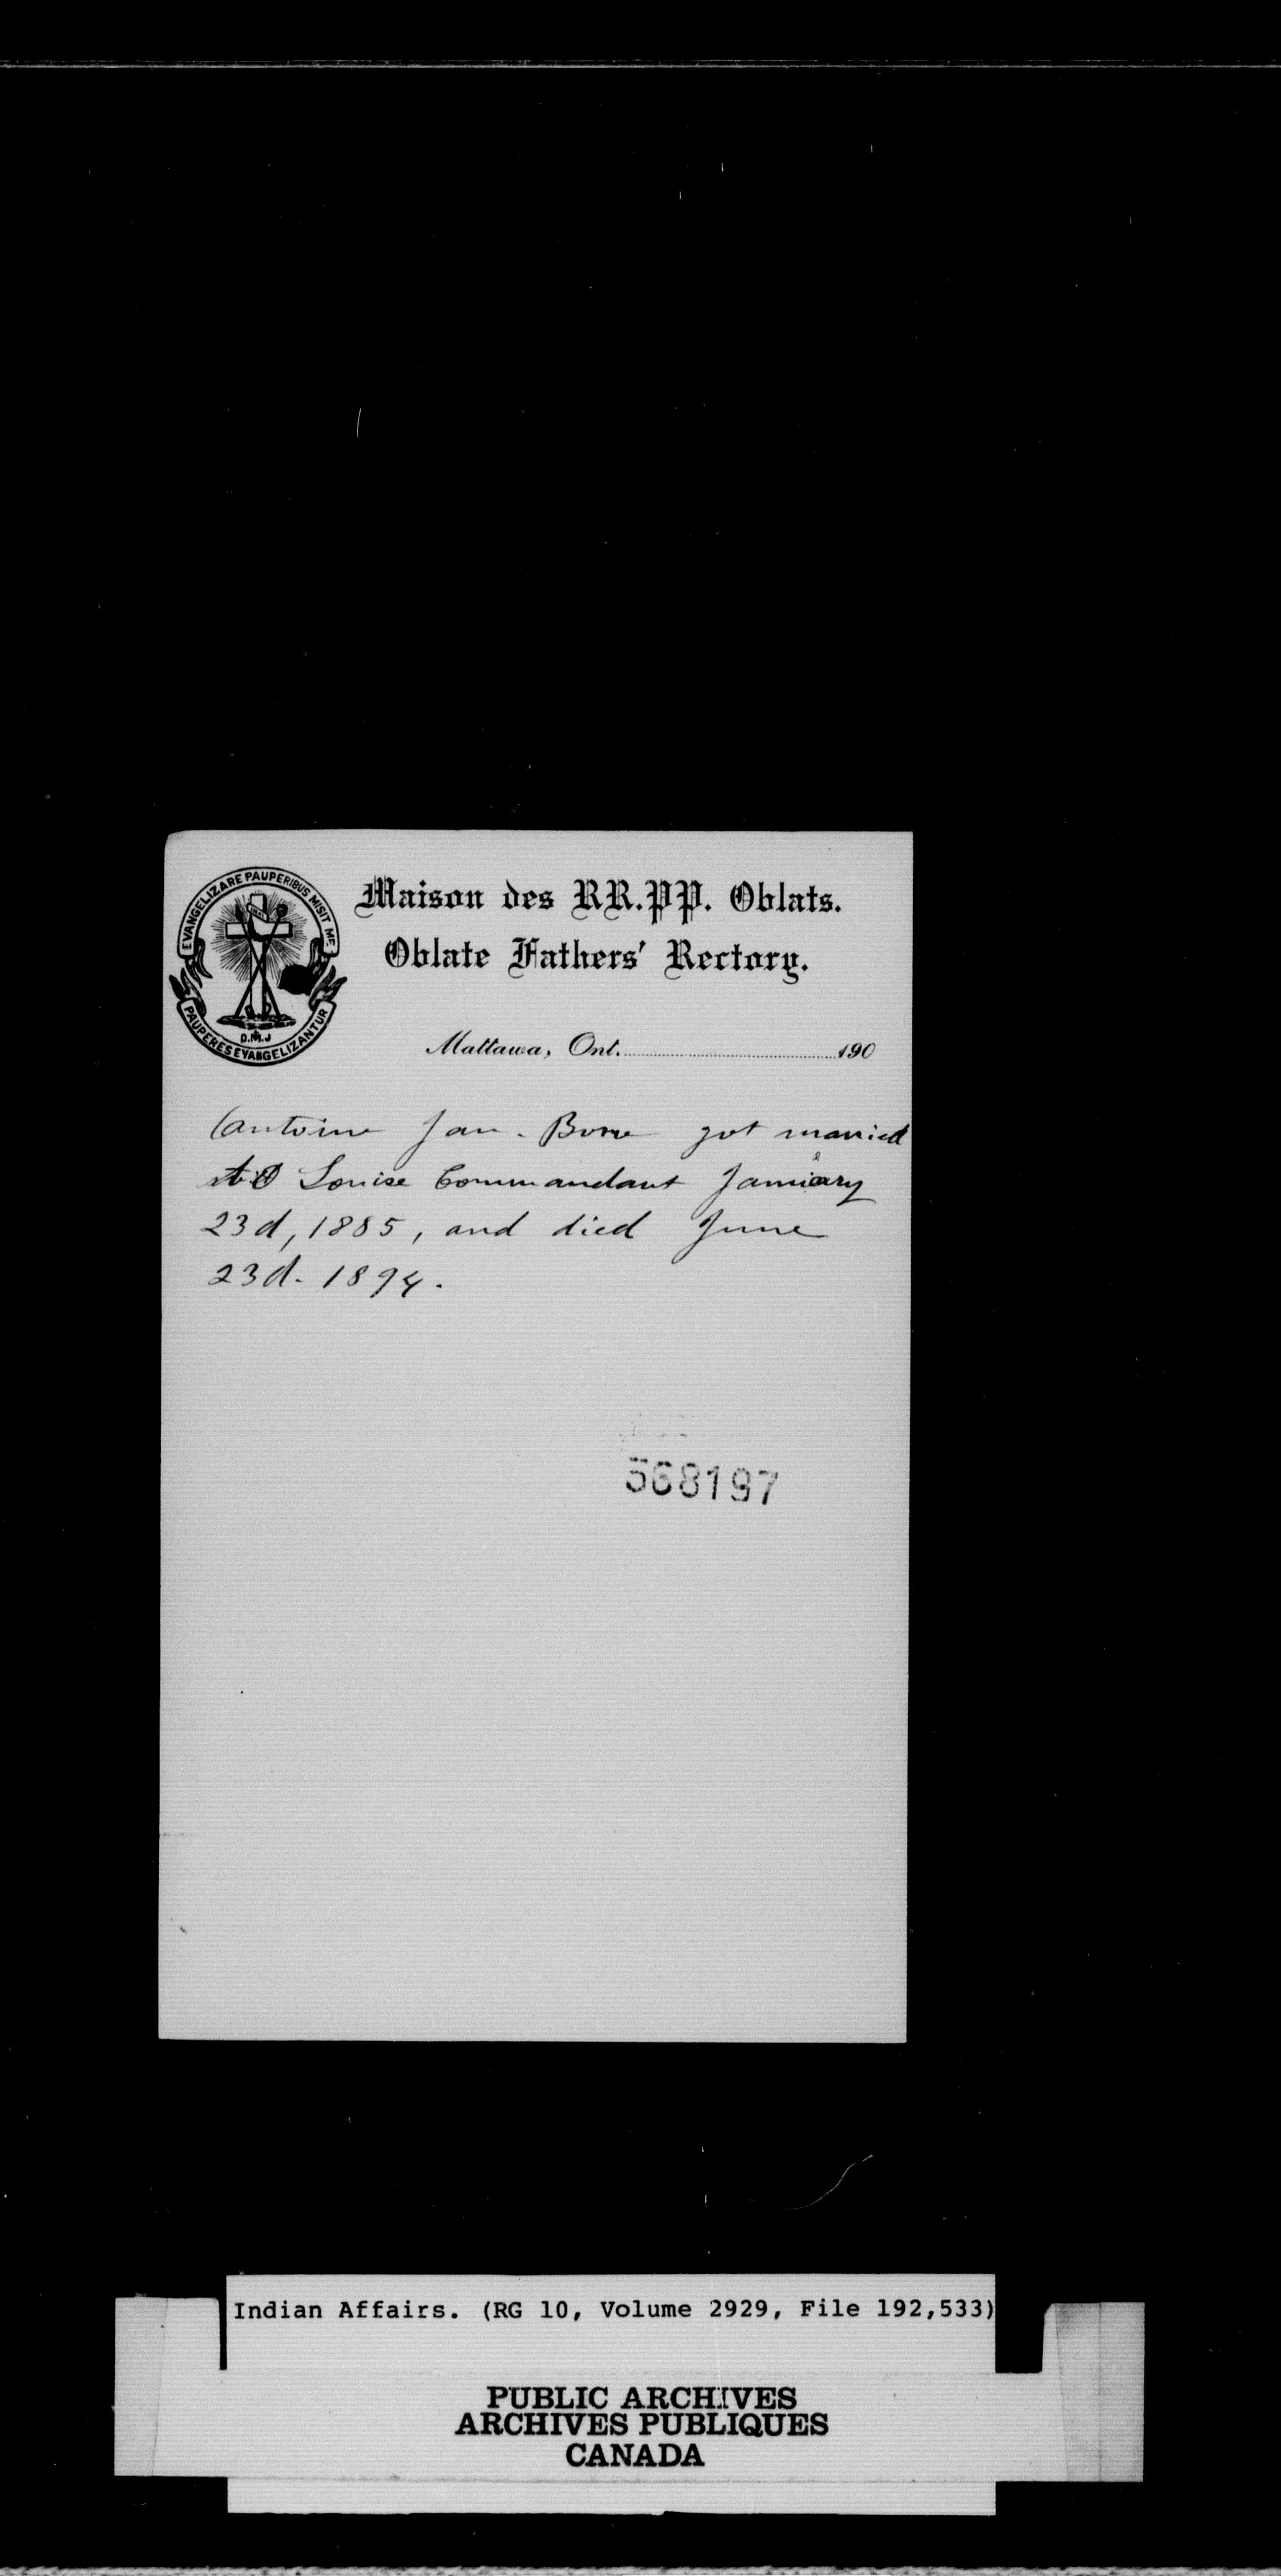 EVANGELIZARE PAUPERIBUS MISIT ME
PAUPERES EVANGELIZANTUR
O.M.J
Maison des RR.PP. Oblats.
Oblate Fathers' Rectory.
Mattawa, Ont. 190
Antoine Jan. Bone got married
to Louise Commandant January
23d, 1885, and died June
23d. 1894.
568197
Indian Affairs. (RG 10, Volume 2929, File 192,533)
PUBLIC ARCHIVES
ARCHIVES PUBLIQUES
CANADA